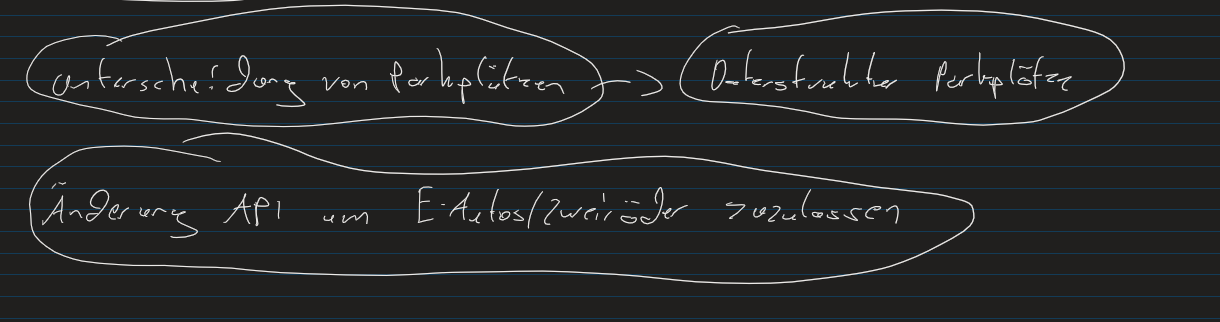 Unterscheidung von Parkplätzen -> Datenstruktur Parkplätze
Änderung API um E-Autos/Zweiräder zuzulassen